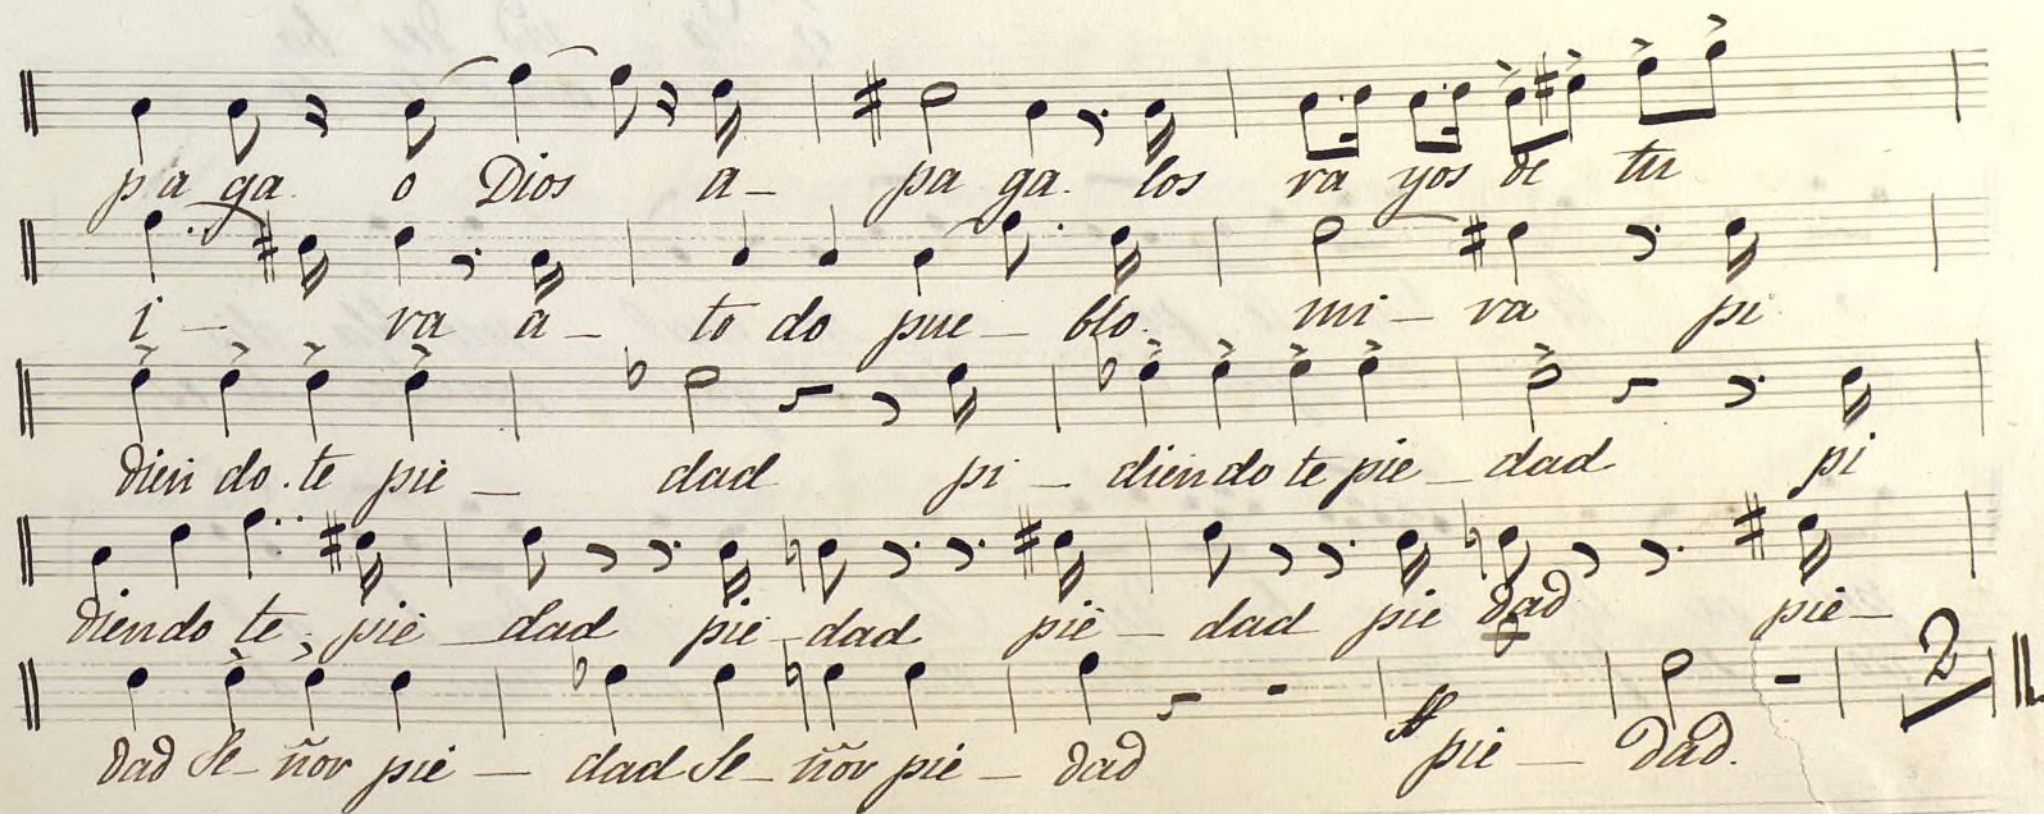 pa ga. o Dios a- pa ga. los ra yos de tu
i- ra a- to do pue- blo. mi- ra pi
dien do. te pie- dad pi- diendo te pie- dad pi
diendo te, pie- dad pie- dad pie- dad pie dad pie-
dad Se- ñor pie- dad Se- ñor pie- dad pie- dad.
2